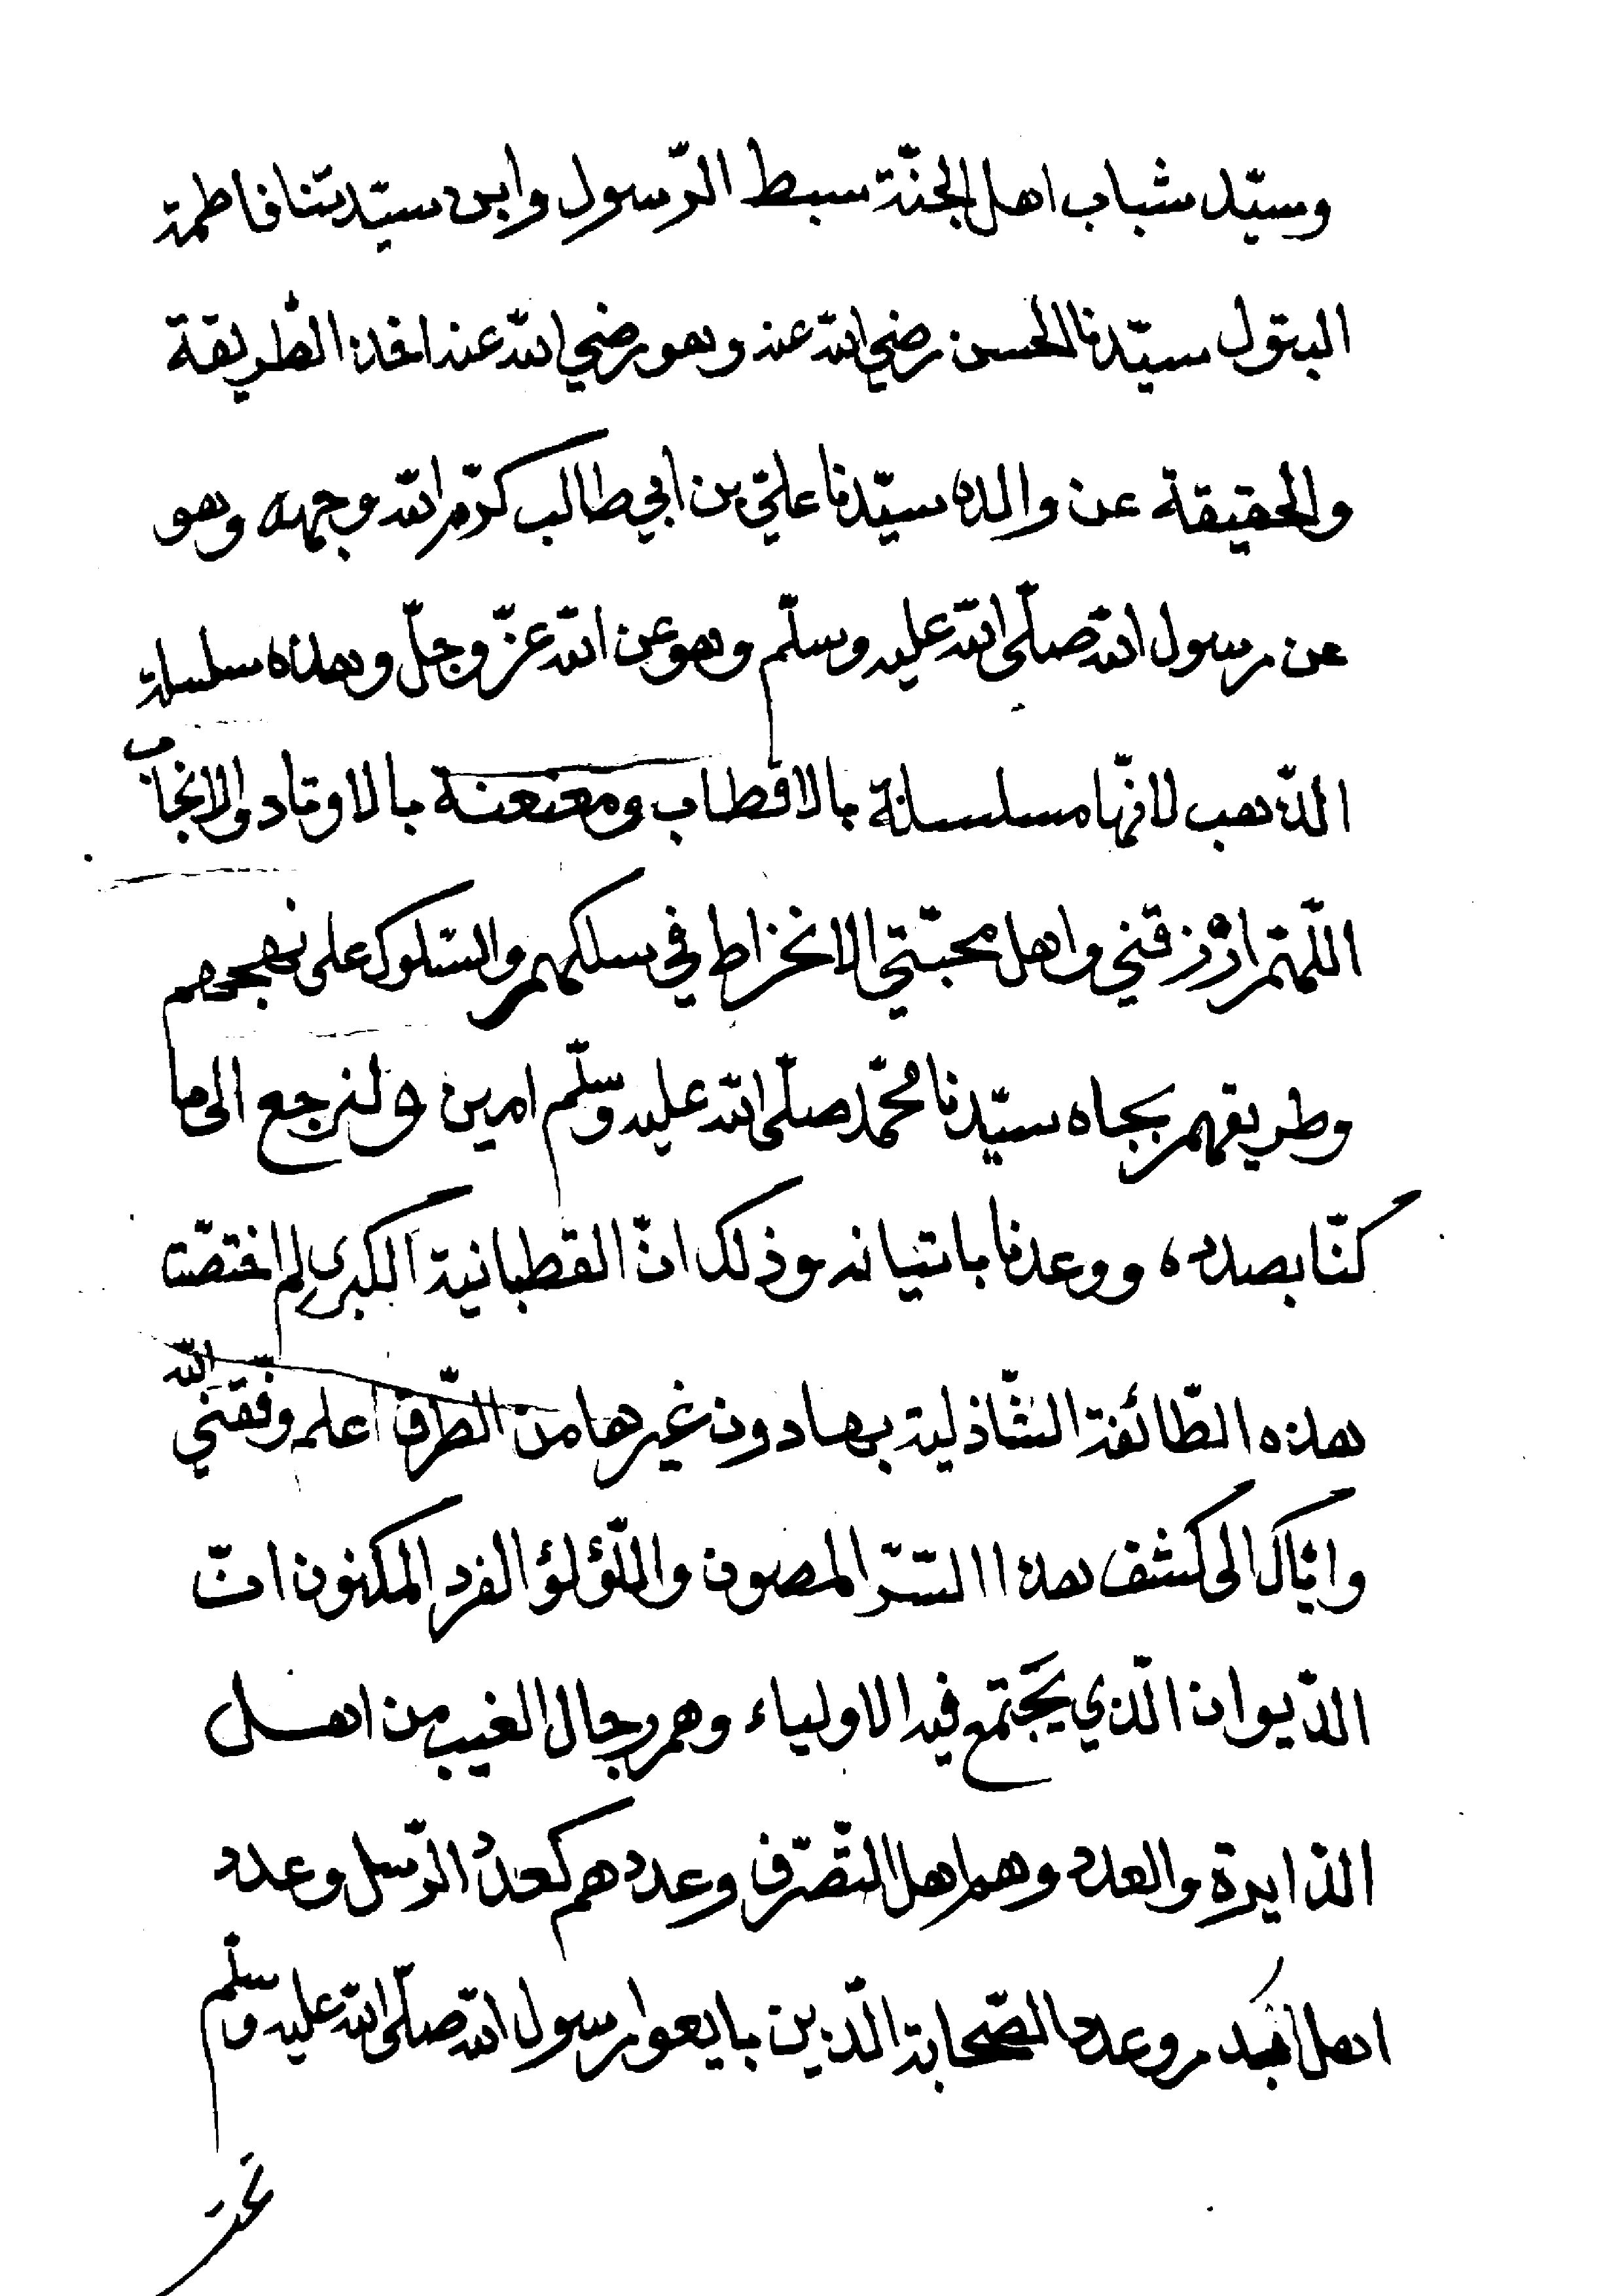 وسيّد شباب اهل الجنّة سبط الرّسول وابن سيّدتنا فاطمة
البتول سيّدنا الحسن رضي الله عنه وهو رضي الله عنه اخذ الطّريقة
والحقيقة عن والده سيّدنا عليّ بن ابي طالب كرّم الله وجهه وهو
عن رسول الله صلّى الله عليه وسلّم وهو عن الله عزّ وجلّ وهذه سلسلة
الذّهب لانّها مسلسلة بالاقطاب ومعنعنة بالاوتاد والانجاب
اللّهمّ ارزقني واهل محبّتي الانخراط في سلكهم والسّلوك على نهجهم
وطريقهم بجاه سيّدنا محمّد صلّى الله عليه وسلّم امين ولنرجع الى ما
كنّا بصدده ووعدنا باتيانه وذلك انّ القطبانية الكبرى لم اختصّت
هذه الطّائفة الشّاذلية بها دون غيرها من الطّرق اعلم وفّقني الله
وايّاك الى كشف هذا السّرّ المصون واللّؤلؤ الفرد المكنون انّ
الدّيوان الّذي يجتمع فيه الاولياء وهم رجال الغيب من اهل
الدّايرة والعدد وهم اهل التّصرّف وعددهم كعدد الرّسل وعدد
اهل بدر وعدد الصّحابة الّذين بايعوا رسول الله صلّى الله عليه وسلّم
تحت